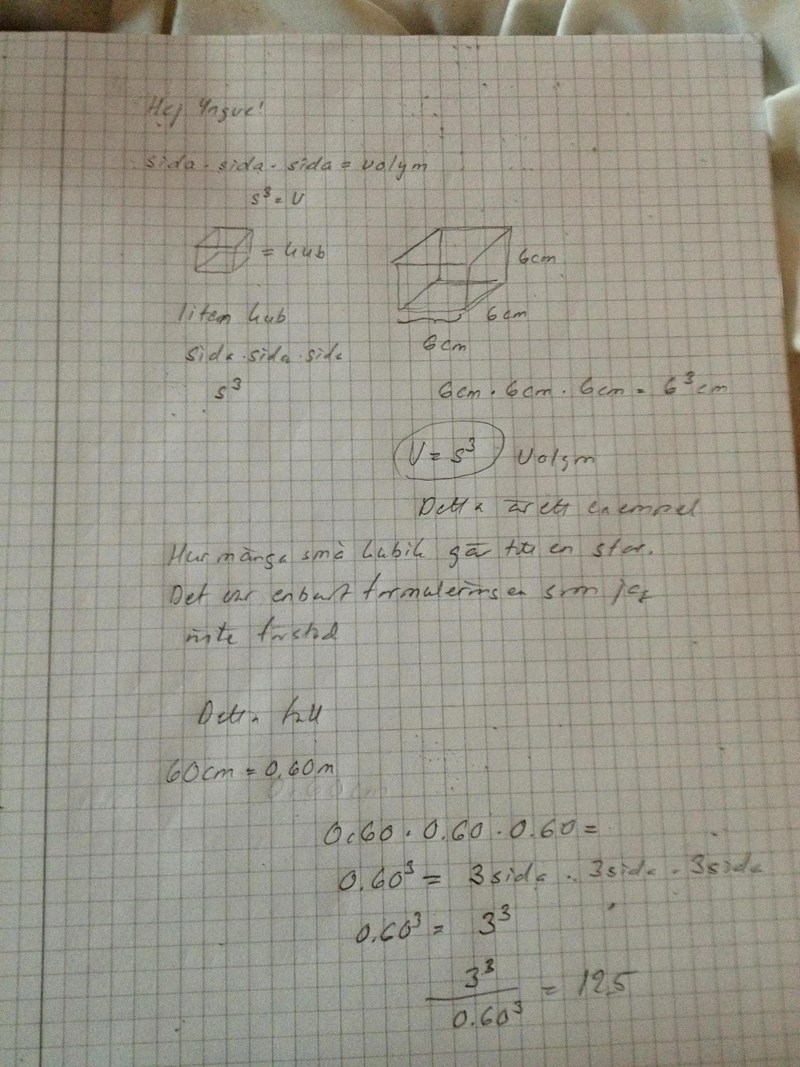 Hej Yngve!
sida · sida · sida = volym
s³ = V
= kub
6cm
6cm
6cm
liten kub
sida · sida · sida
s³
6cm · 6cm · 6cm = 6³cm
V = s³ Volym
Detta är ett exempel
Hur många små kubik går till en stor.
Det var enbart formuleringen som jag
inte förstod
Detta fall
60cm = 0.60m
0.60 · 0.60 · 0.60 =
0.60³ = 3sida · 3sida · 3sida
0.60³ = 3³
3³
0.60³ = 125